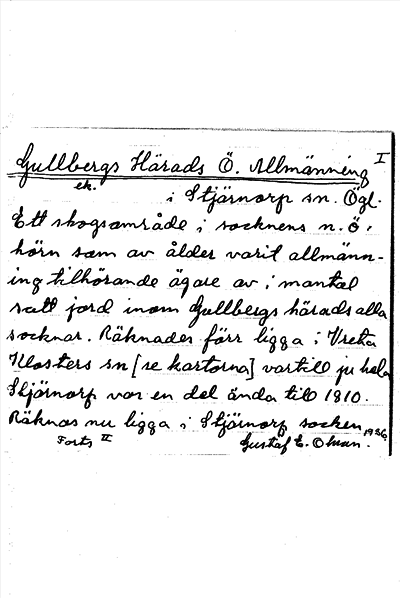 I
Gullbergs Härads Ö. Allmänning
ek.
i Stjärnorp sn. Ögl.
Ett skogsområde i socknens n. ö.
hörn som av ålder varit allmänn-
ing tillhörande ägare av i mantal
satt jord inom Gullbergs härads alla
socknar. Räknades förr ligga i Vreta
Klosters sn [se kartorna] vartill ju hela
Stjärnorp var en del ända till 1810.
Räknas nu ligga i Stjärnorp socken
Forts II Gustaf E. Ohman. 1926